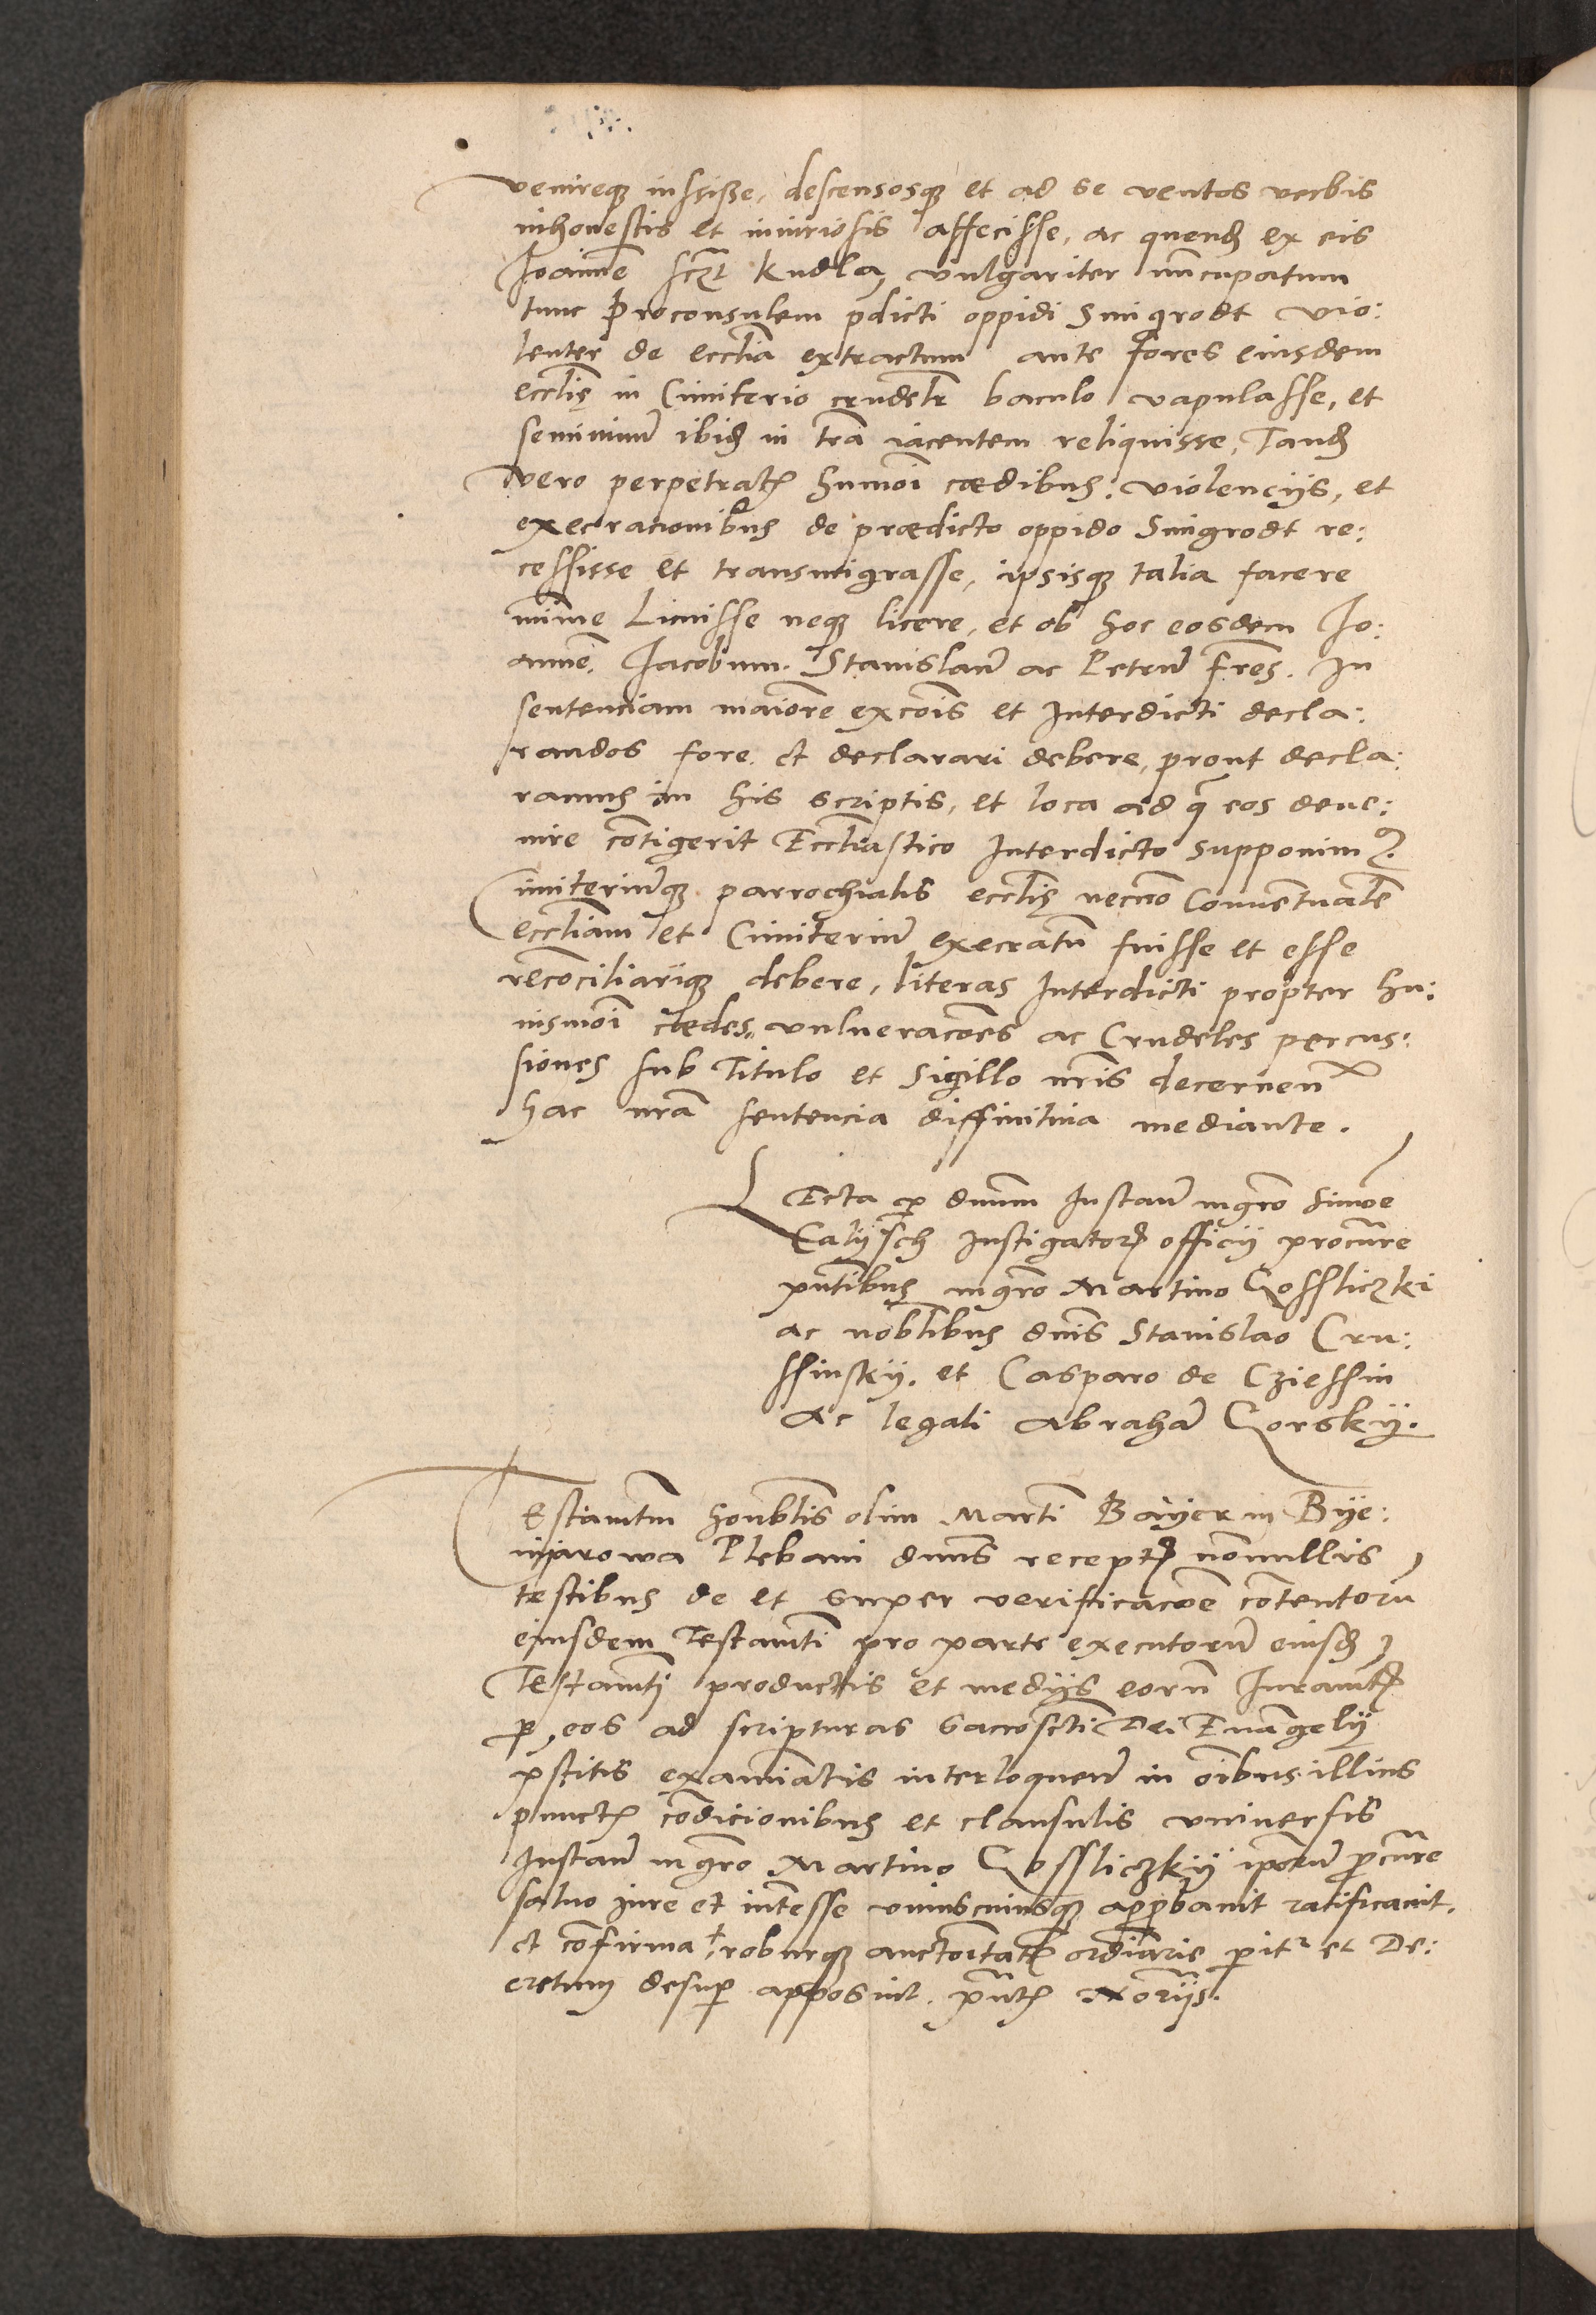 venireque iussisse, descensosque et ad se ventos verbis
inhonestis et iniuriosis affecisse, ac quend ex eis
Joannē sczt Kudla, vulgariter nūcupatum
tunc Proconsulem pdicti oppidi Smigrodt vio:
lenter de ecclīa extractum ante fores eiusdem
ecclię in Cimiterio crudelr baculo vapulasse, et
semiuiuū ibid in trā iacentem reliquisse, Tand
vero perpetrat hmōi cædibus: violencijs, et
execracionibus de prædicto oppido Smigrodt re:
cessisse et transmigrasse, ipsisque talia facere
mīme Licuisse neque licere, et ob hoc eosdem Jo:
annē. Jacobum. Stanislaū ac Petrū frēs. In
sentenciam maiorē excōis et Interdicti decla:
randos fore et declarari debere, prout decla:
ramus in his scriptis, et loca ad q̄ eos deue:
nire cōtigerit Eccliastico Interdicto supponim9.
Cimiteriūque parrochialis ecclię necnō Conuentualē
ecclīam et Cimiteriū execratū fuisse et esse
recōciliariique debere, literas Interdicti propter hu:
iusmōi cædes, vulneracōes ac Crudeles percus:
siones sub Titulo et Sigillo nr̄is decernen
hac nr̄a sentencia diffinitiua mediante.
LEcta p dnum Instan mgrō Simōe
Calysch Instigator officij procure
pntibus mgrō Martino Gossliczki
ac noblibus dnis Stanislao Cru:
ssinskij. et Casparo de Cziessin
Ac legali Abrahā Gorskij.
TEstamtm honblis olim Marti Bayer in Bije:
mjarowa Plebani dnus recept nonnullis
testibus de et super verificacōe cōtentorū
eiusdem Testamti pro parte executorū eiusd
Testamti productis et medijs eorū Juramt
p eos ad scripturas sacroscti Dei Euāgelij
pstitis examiatis interloquen in oībus illius
punct cōdicionibus et clausulis vniuersis
Instan mgrō Martino Gossliczkij ipsorū procure
saluo iure et intesse vniuscuiusque approbauit ratificauit.
et cōfirmat roburque auctoritat ordiarie et De:
cretum desup apposuit. pnt Norijs.